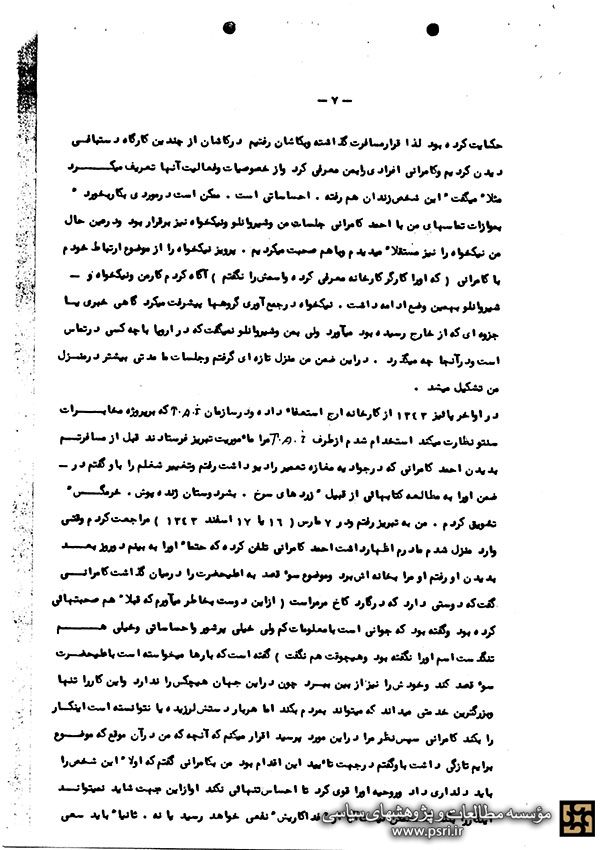 — ۷ —
حکایت کرده بود لذا قرار مسافرت گذاشته و بکاشان رفتیم در کاشان از چندین کارگاه دستبافی
دیدن کردیم و کامرانی افرادی را بمن معرفی کرد و از خصوصیات و فعالیت آنها تعریف میکرد
مثلاً میگفت " این شخص زندان هم رفته . احساساتی است . ممکن است در موردی بکار بخورد "
بموازات تماسهای من با احمد کامرانی جلسات من و شیروانلو و نیکخواه نیز برقرار بود و در عین حال
من نیکخواه را نیز مستقلاً میدیدم و باهم صحبت میکردیم . پرویز نیکخواه را از موضوع ارتباط خودم
با کامرانی ( که او را کارگر کارخانه معرفی کرده و اسمش را نگفتم ) آگاه کردم کار من و نیکخواه و —
شیروانلو بهمین وضع ادامه داشت . نیکخواه در جمع آوری گروهها پیشرفت میکرد گاهی خبری یا
جزوه ای که از خارج رسیده بود میآورد ولی بمن و شیروانلو نمیگفت که در اروپا با چه کسی در تماس
است و در آنجا چه میگذرد . در این ضمن من منزل تازه ای گرفتم و جلسات ما مدتی بیشتر در منزل
من تشکیل میشد .
در اواخر پائیز ۱۳۴۳ از کارخانه ارج استعفاء داده و در سازمان که بر پروژه مخابرات
سنتو نظارت میکند استخدام شدم از طرف مرا مأموریت تبریز فرستادند قبل از مسافرتم
بدیدن احمد کامرانی که در جوادیه مغازه تعمیر رادیو داشت رفتم و تغییر شغلم را باو گفتم در —
ضمن او را به مطالعه کتابهائی از قبیل " زردهای سرخ . بشر دوستان ژنده پوش . خرمگس "
تشویق کردم . من به تبریز رفتم و در ۷ مارس ( ۱۶ یا ۱۷ اسفند ۱۳۴۳ ) مراجعت کردم وقتی
وارد منزل شدم مادرم اظهار داشت احمد کامرانی تلفن کرده که حتماً او را به بینم دو روز بعد
بدیدن او رفتم او مرا بخانه اش برد و موضوع سوء قصد به اعلیحضرت را در میان گذاشت کامرانی
گفت که دوستی دارد که در گارد کاخ مرمر است ( از این دوست بخاطر میآورم که قبلاً هم صحبتهائی
کرده بود و گفته بود که جوانی است با معلومات کم ولی خیلی پرشور و احساساتی و خیلی هم
تنگدست اسم او را نگفته بود و هیچوقت هم نگفت ) گفته است که بارها میخواسته است باعلیحضرت
سوء قصد کند و خودش را نیز از بین ببرد چون در این جهان هیچکس را ندارد و این کار را تنها
و بزرگترین خدمتی میداند که میتواند بمردم بکند اما هر بار دستش لرزیده یا نتوانسته است اینکار
را بکند کامرانی سپس نظر مرا در این مورد پرسید اقرار میکنم که آنچه که من در آن موقع که موضوع
برایم تازگی داشت باو گفتم در جهت تأیید این اقدام بود من بکامرانی گفتم که اولاً این شخص را
باید دلداری داد و روحیه او را قوی کرد تا احساس تنهائی نکند او از این جهت شاید نمیتواند
فداکاریش نفعی خواهد رسید یا نه . ثانیاً باید سعی
مؤسسه مطالعات و پژوهشهای سیاسی
www.psri.ir